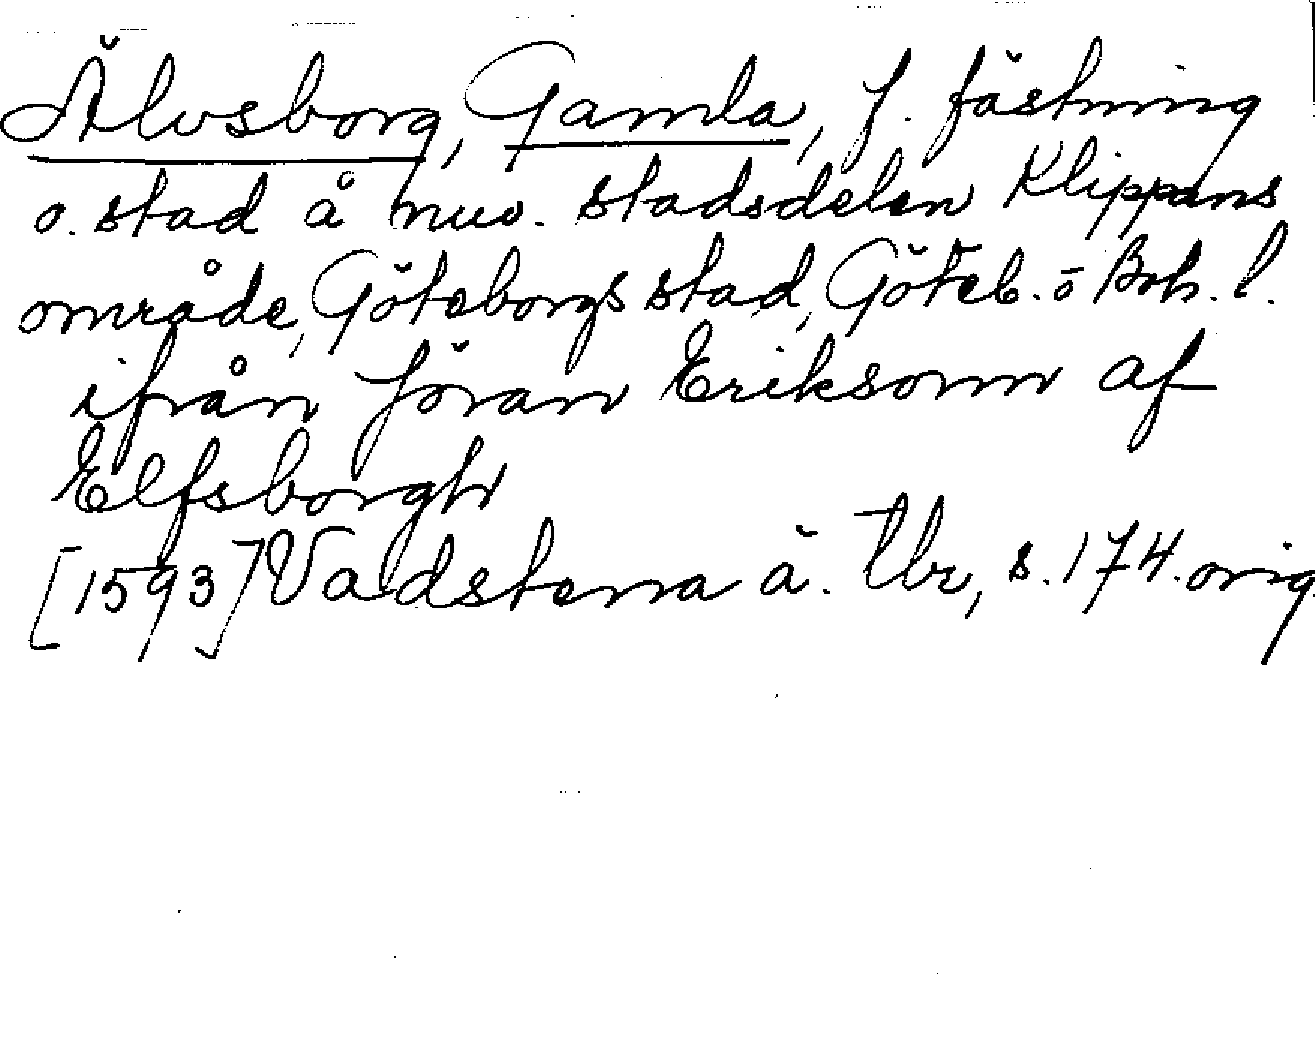 Älvsborg, Gamla, f. fästning
o. stad å nuv. stadsdelen Klippans
område, Göteborgs stad, Göteb. o Boh. l.
ifrån Jöran Eriksonn af
Elfsborgh
[1593] Vadstena ä. tbr, s. 174. orig.